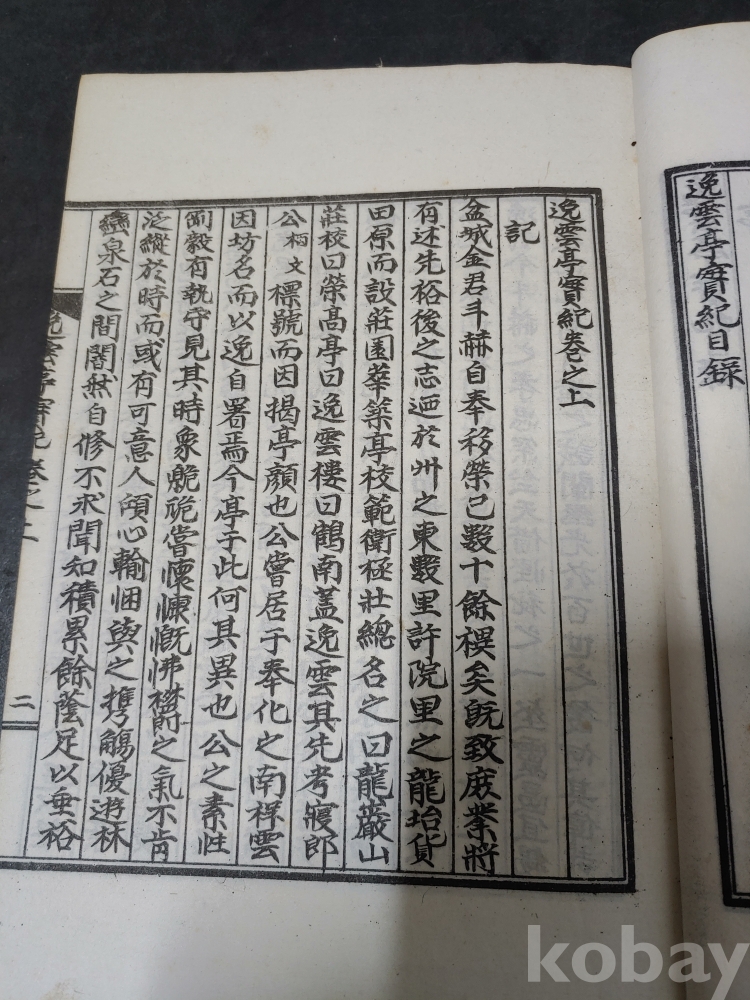 逸雲亭實紀目錄
逸雲亭實紀卷之上
記
盆城金君斗赫自奉移榮已數十餘禩矣旣致成業將
有述先裕後之志迺於州之東數里許院里之龍坮貰
田原而設莊園華築亭校範衛極壯總名之曰龍巖山
莊校曰榮高亭曰逸雲樓曰鶴南蓋逸雲其先考寢郎
公柄文標號而因揭亭顔也公嘗居于奉化之南祥雲
因坊名而以逸自署焉今亭于此何其異也公之素性
剛毅有執守見其時象觤硊嘗懷慷慨怫欝之氣不肯
泛縱於時而或有可意人傾心輸悃與之携觴優遊林
巒泉石之間闇然自修不求聞知積累餘蔭足以垂裕
逸雲亭實紀 卷之上
二
kobay